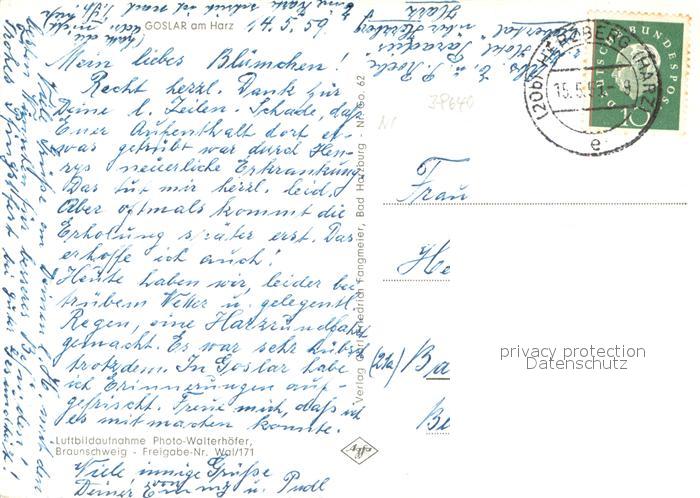 GOSLAR am Harz
14.5.59
Mein liebes Blümchen!
Recht herzl. Dank für
Deine l. Zeilen. Schade, daß
Euer Aufenthalt dort et-
was getrübt war durch Hen-
rys neuerliche Erkrankung
Das tut mir herzl. leid.
Aber oftmals kommt die
Erholung später erst. Das
erhoffe ich auch!
Heute haben wir, leider bei
trübem Wetter u. gelegentl.
Regen, eine Harzrundfahrt
gemacht. Es war sehr hübsch
trotzdem. In Goslar habe
ich Erinnerungen auf-
gefrischt. Freue mich, daß ich
es mitmachen konnte.
Luftbildaufnahme Photo-Walterhöfer,
Braunschweig - Freigabe-Nr. Wal/171
Viele innige Grüße
Deine
u. Pudl
Viele Grüße an Deinen
frohes Pfingstfest bei guter Gesundheit!
Verlag Karl Friedrich Fangmeier, Bad Harzburg - Nr. Go. 62
Hotel Paradies
über Herzberg
Harz
38640
(20b) HERZBERG (HARZ)
15.5.59.- 9
e
DEUTSCHE BUNDESPOST
10
Frau
He
(21a) Ba
Be
privacy protection
Datenschutz